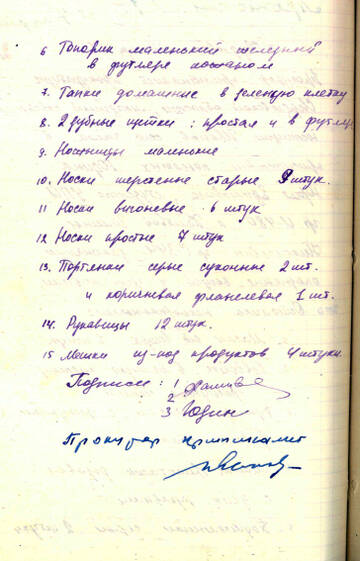 6 Топорик маленький железный
в футляре кожаном
7. Тапки домашние в зеленую клетку
8. 2 зубные щетки: простая и в футляре
9. Ножницы маленькие
10. Носки шерстяные старые 9 штук.
11 Носки вигоневые 6 штук
12 Носки простые 7 штук
13. Портянки серые суконные 2 шт.
и коричневая фланелевая 1 шт.
14. Рукавицы 12 штук.
15 Мешки из-под продуктов 4 штуки.
Подписи: 1
2
3 Юдин
Прокурор криминалист